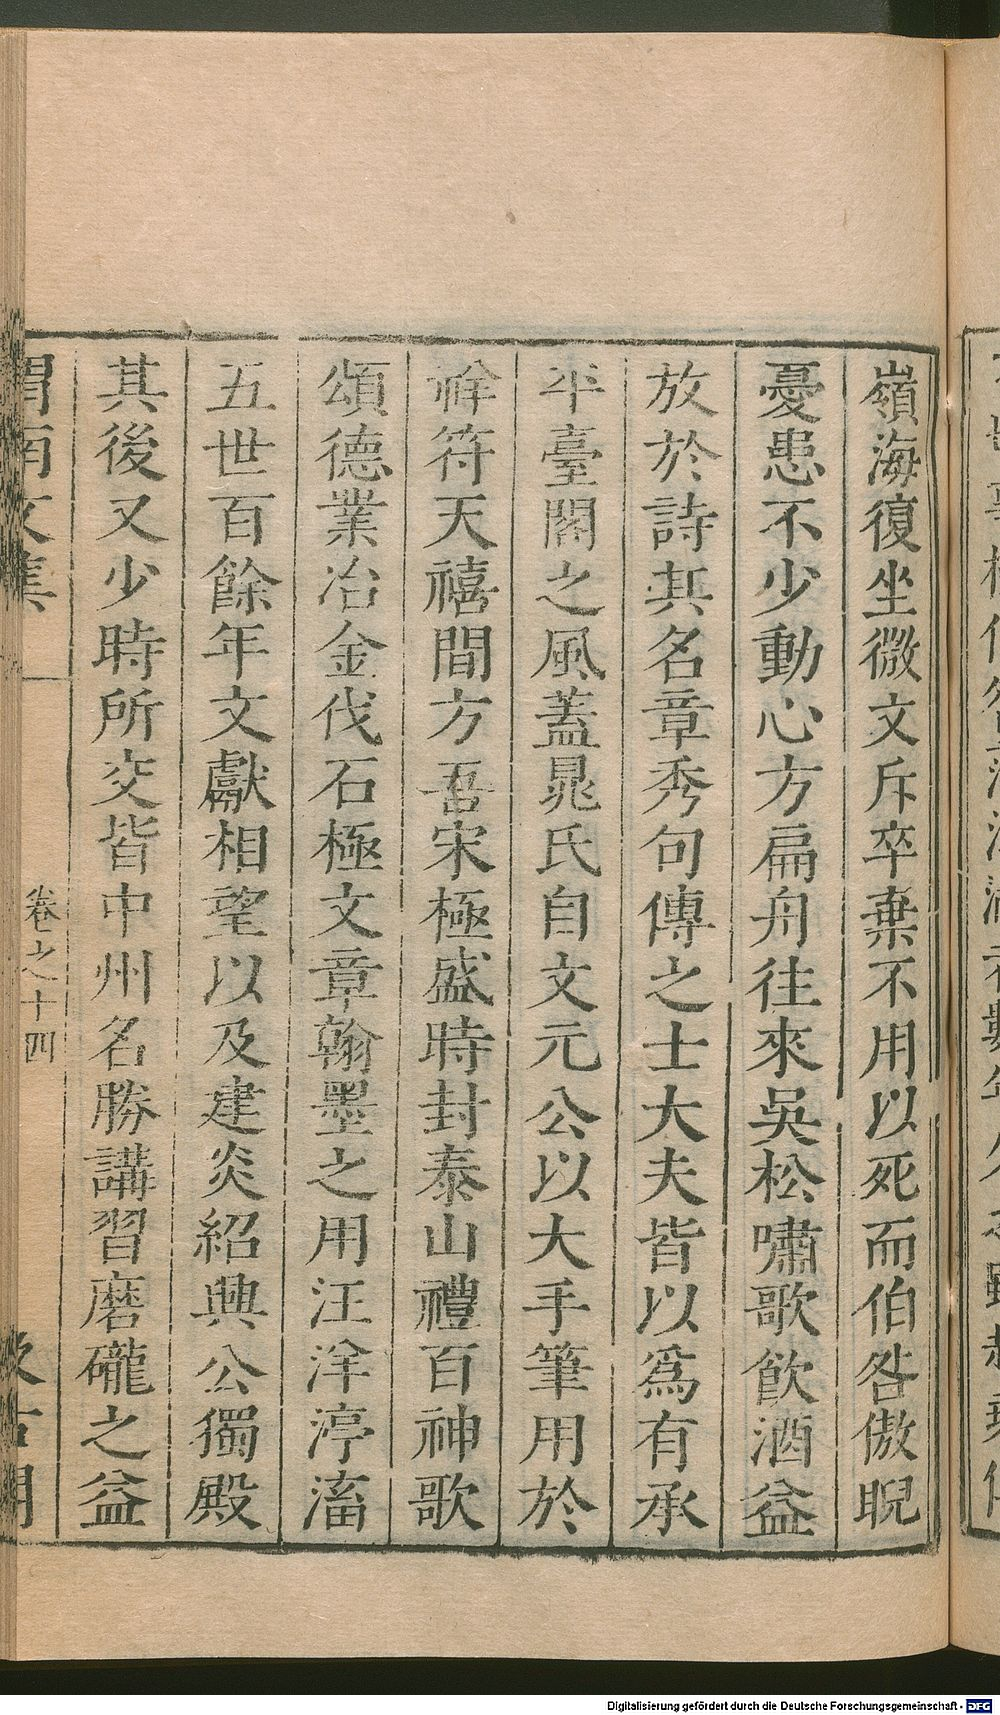 嶺海復坐微文斥卒棄不用以死而伯咎傲睨
憂患不少動心方扁舟往來吳松嘯歌飲酒益
放於詩其名章秀句傳之士大夫皆以爲有承
平臺閣之風蓋晁氏自文元公以大手筆用於
祥符天禧間方吾宋極盛時封泰山禮百神歌
頌德業冶金伐石極文章翰墨之用汪洋渟滀
五世百餘年文獻相望以及建炎紹興公獨殿
其後又少時所交皆中州名勝講習磨礲之益
渭南文集
卷之十四
汲古閣
Digitalisierung gefördert durch die Deutsche Forschungsgemeinschaft - DFG